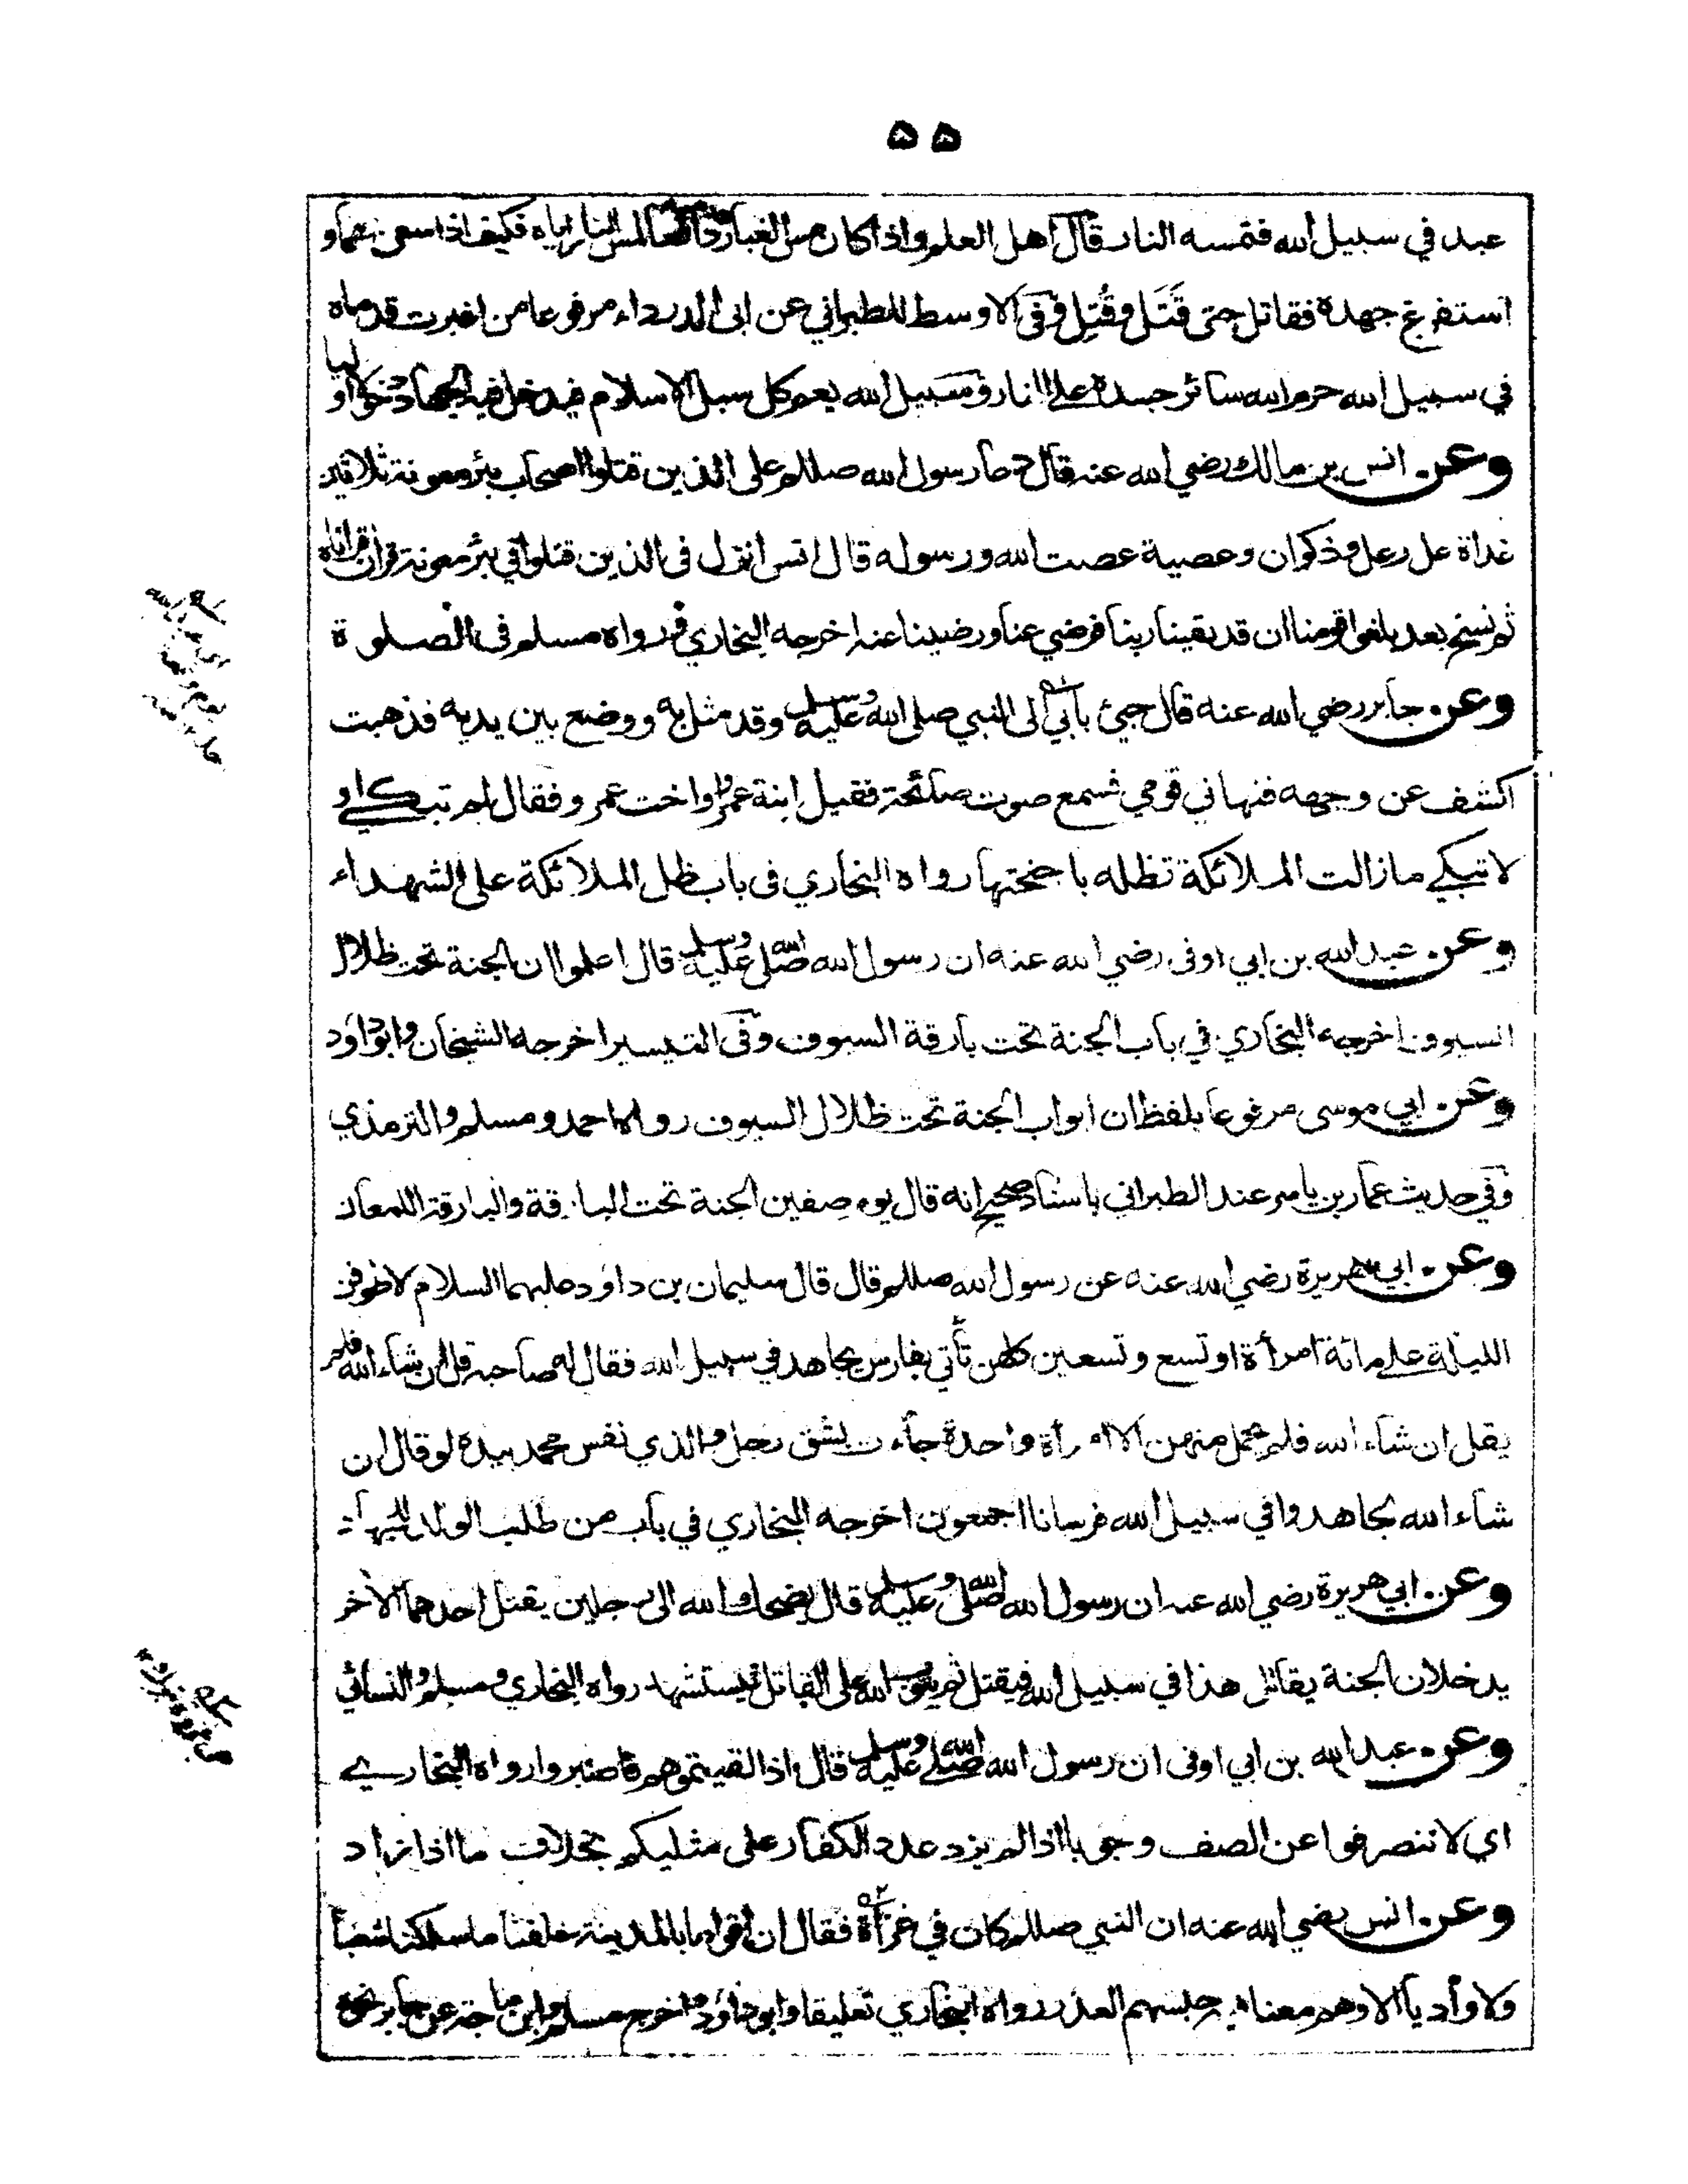 ۵۵
عبد في سبيل الله فتمسه النار قال اهل العلم واذا كان مس الغبار دافعا لمس النار اياه فكيف اذا سعى بهما و
استفرغ جهده فقاتل حتى قَتَل وقُتِل وفى الاوسط للطبراني عن ابى الدرداء مرفوعا من اغبرت قدماه
في سبيل الله حرم الله سائر جسده على النار وسبيل الله يعم كل سبل الاسلام فيدخل فيه الجهاد دخولا اوليا
وعن انس بن مالك رضي الله عنه قال دعا رسول الله صللم على الذين قتلوا اصحاب بئر معونة ثلاثين
غداة على رعل وذكوان وعصية عصت الله ورسوله قال انس انزل فى الذين قتلوا في بئر معونة قرآن قرأناه
ثم نسخ بعد بلغوا قومنا ان قد لقينا ربنا فرضي عنا ورضينا عنه اخرجه البخاري ورواه مسلم فى الصلوة
وعن جابر رضي الله عنه قال جيئ بأبي الى النبي صلى الله عليه وسلم وقد مثل به ووضع بين يديه فذهبت
اكشف عن وجهه فنهاني قومي فسمع صوت صائحة فقيل ابنة عمرو او اخت عمرو فقال لم تبكي او
لا تبكي ما زالت الملائكة تظله باجنحتها رواه البخاري فى باب ظل الملائكة على الشهداء
وعن عبد الله بن ابي اوفى رضي الله عنه ان رسول الله صلى الله عليه وسلم قال اعلموا ان الجنة تحت ظلال
السيوف اخرجه البخاري في باب الجنة تحت بارقة السيوف وفى التيسير اخرجه الشيخان وابو داود
وعن ابي موسى مرفوعا بلفظ ان ابواب الجنة تحت ظلال السيوف رواه احمد ومسلم والترمذي
وفي حديث عمار بن ياسر عند الطبراني باسناد صحيح انه قال يوم صفين الجنة تحت البارقة والبارقة اللمعان
وعن ابي هريرة رضي الله عنه عن رسول الله صللم قال قال سليمان بن داود عليهما السلام لاطوفن
الليلة على مائة امرأة او تسع وتسعين كلهن تأتي بفارس يجاهد في سبيل الله فقال له صاحبه قل ان شاء الله فلم
يقل ان شاء الله فلم تحمل منهن الا امرأة واحدة جاءت بشق رجل والذي نفس محمد بيده لو قال ان
شاء الله لجاهدوا في سبيل الله فرسانا اجمعون اخرجه البخاري في باب من طلب الولد للجهاد
وعن ابي هريرة رضي الله عنه ان رسول الله صلى الله عليه وسلم قال يضحك الله الى رجلين يقتل احدهما الآخر
يدخلان الجنة يقاتل هذا في سبيل الله فيقتل ثم يتوب الله على القاتل فيستشهد رواه البخاري ومسلم والنسائي
وعن عبد الله بن ابي اوفى ان رسول الله صلى الله عليه وسلم قال اذا لقيتموهم فاصبروا رواه البخاري
اي لا تنصرفوا عن الصف وجوبا اذا لم يزد عدد الكفار على مثليكم بخلاف ما اذا زاد
وعن انس رضي الله عنه ان النبي صللم كان في غزاة فقال ان اقواما بالمدينة خلفنا ما سلكنا شعبا
ولا وأديا الا وهم معنا فيه حبسهم العذر رواه البخاري تعليقا وابو داود واخرج مسلم وابن ماجة عن جابر نحوه